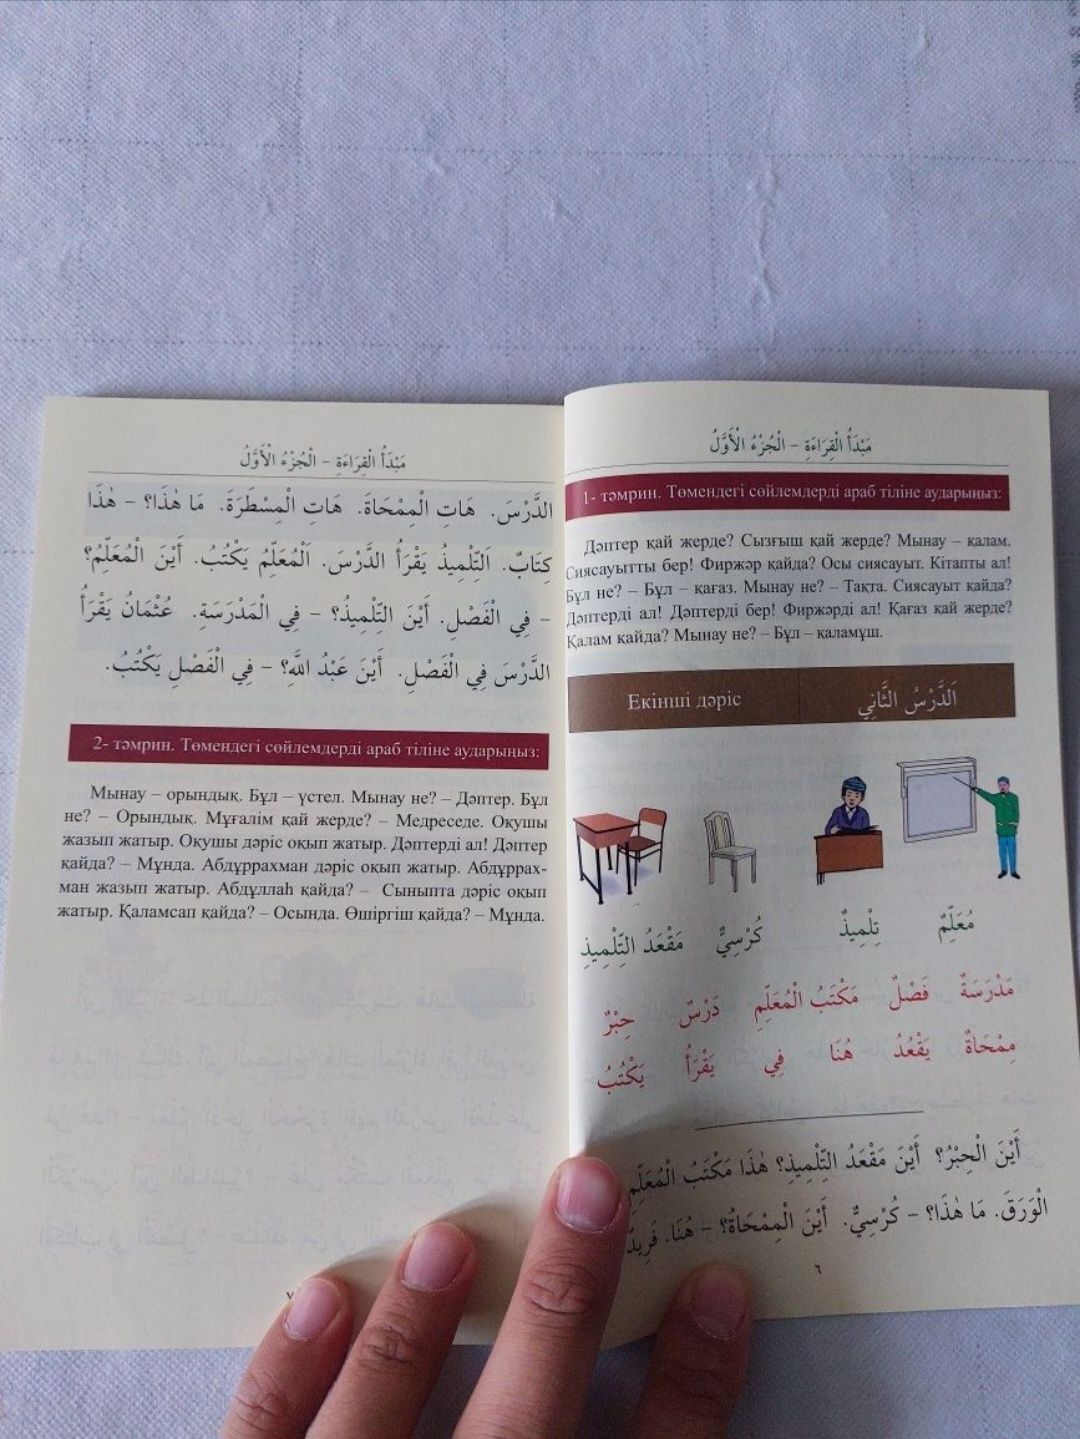 مَبْدَأُ الْقِرَاءَةِ – الْجُزْءُ الْأَوَّلُ
1- тәмрин. Төмендегі сөйлемдерді араб тіліне аударыңыз:
Дәптер қай жерде? Сызғыш қай жерде? Мынау – қалам.
Сиясауытты бер! Фиржәр қайда? Осы сиясауыт. Кітапты ал!
Бұл не? – Бұл – қағаз. Мынау не? – Тақта. Сиясауыт қайда?
Дәптерді ал! Дәптерді бер! Фиржәрді ал! Қағаз қай жерде?
Қалам қайда? Мынау не? – Бұл – қаламұш.
اَلدَّرْسُ الثَّانِي
Екінші дәріс
مُعَلِّمٌ تِلْمِيذٌ كُرْسِيٌّ مَقْعَدُ التِّلْمِيذِ
مَدْرَسَةٌ فَصْلٌ مَكْتَبُ الْمُعَلِّمِ دَرْسٌ حِبْرٌ
مِمْحَاةٌ يَقْعُدُ هُنَا فِي يَقْرَأُ يَكْتُبُ
أَيْنَ الْحِبْرُ؟ أَيْنَ مَقْعَدُ التِّلْمِيذِ؟ هٰذَا مَكْتَبُ الْمُعَلِّمِ
الْوَرَقَ. مَا هٰذَا؟ – كُرْسِيٌّ. أَيْنَ الْمِمْحَاةُ؟ – هُنَا. فَرِيدٌ
٦
مَبْدَأُ الْقِرَاءَةِ – الْجُزْءُ الْأَوَّلُ
الدَّرْسَ. هَاتِ الْمِمْحَاةَ. هَاتِ الْمِسْطَرَةَ. مَا هٰذَا؟ – هٰذَا
كِتَابٌ. اَلتِّلْمِيذُ يَقْرَأُ الدَّرْسَ. اَلْمُعَلِّمُ يَكْتُبُ. أَيْنَ الْمُعَلِّمُ؟
– فِي الْفَصْلِ. أَيْنَ التِّلْمِيذُ؟ – فِي الْمَدْرَسَةِ. عُثْمَانُ يَقْرَأُ
الدَّرْسَ فِي الْفَصْلِ. أَيْنَ عَبْدُ اللَّهِ؟ – فِي الْفَصْلِ يَكْتُبُ.
2- тәмрин. Төмендегі сөйлемдерді араб тіліне аударыңыз:
Мынау – орындық. Бұл – үстел. Мынау не? – Дәптер. Бұл
не? – Орындық. Мұғалім қай жерде? – Медреседе. Оқушы
жазып жатыр. Оқушы дәріс оқып жатыр. Дәптерді ал! Дәптер
қайда? – Мұнда. Абдұррахман дәріс оқып жатыр. Абдұррах-
ман жазып жатыр. Абдұллаһ қайда? – Сыныпта дәріс оқып
жатыр. Қаламсап қайда? – Осында. Өшіргіш қайда? – Мұнда.